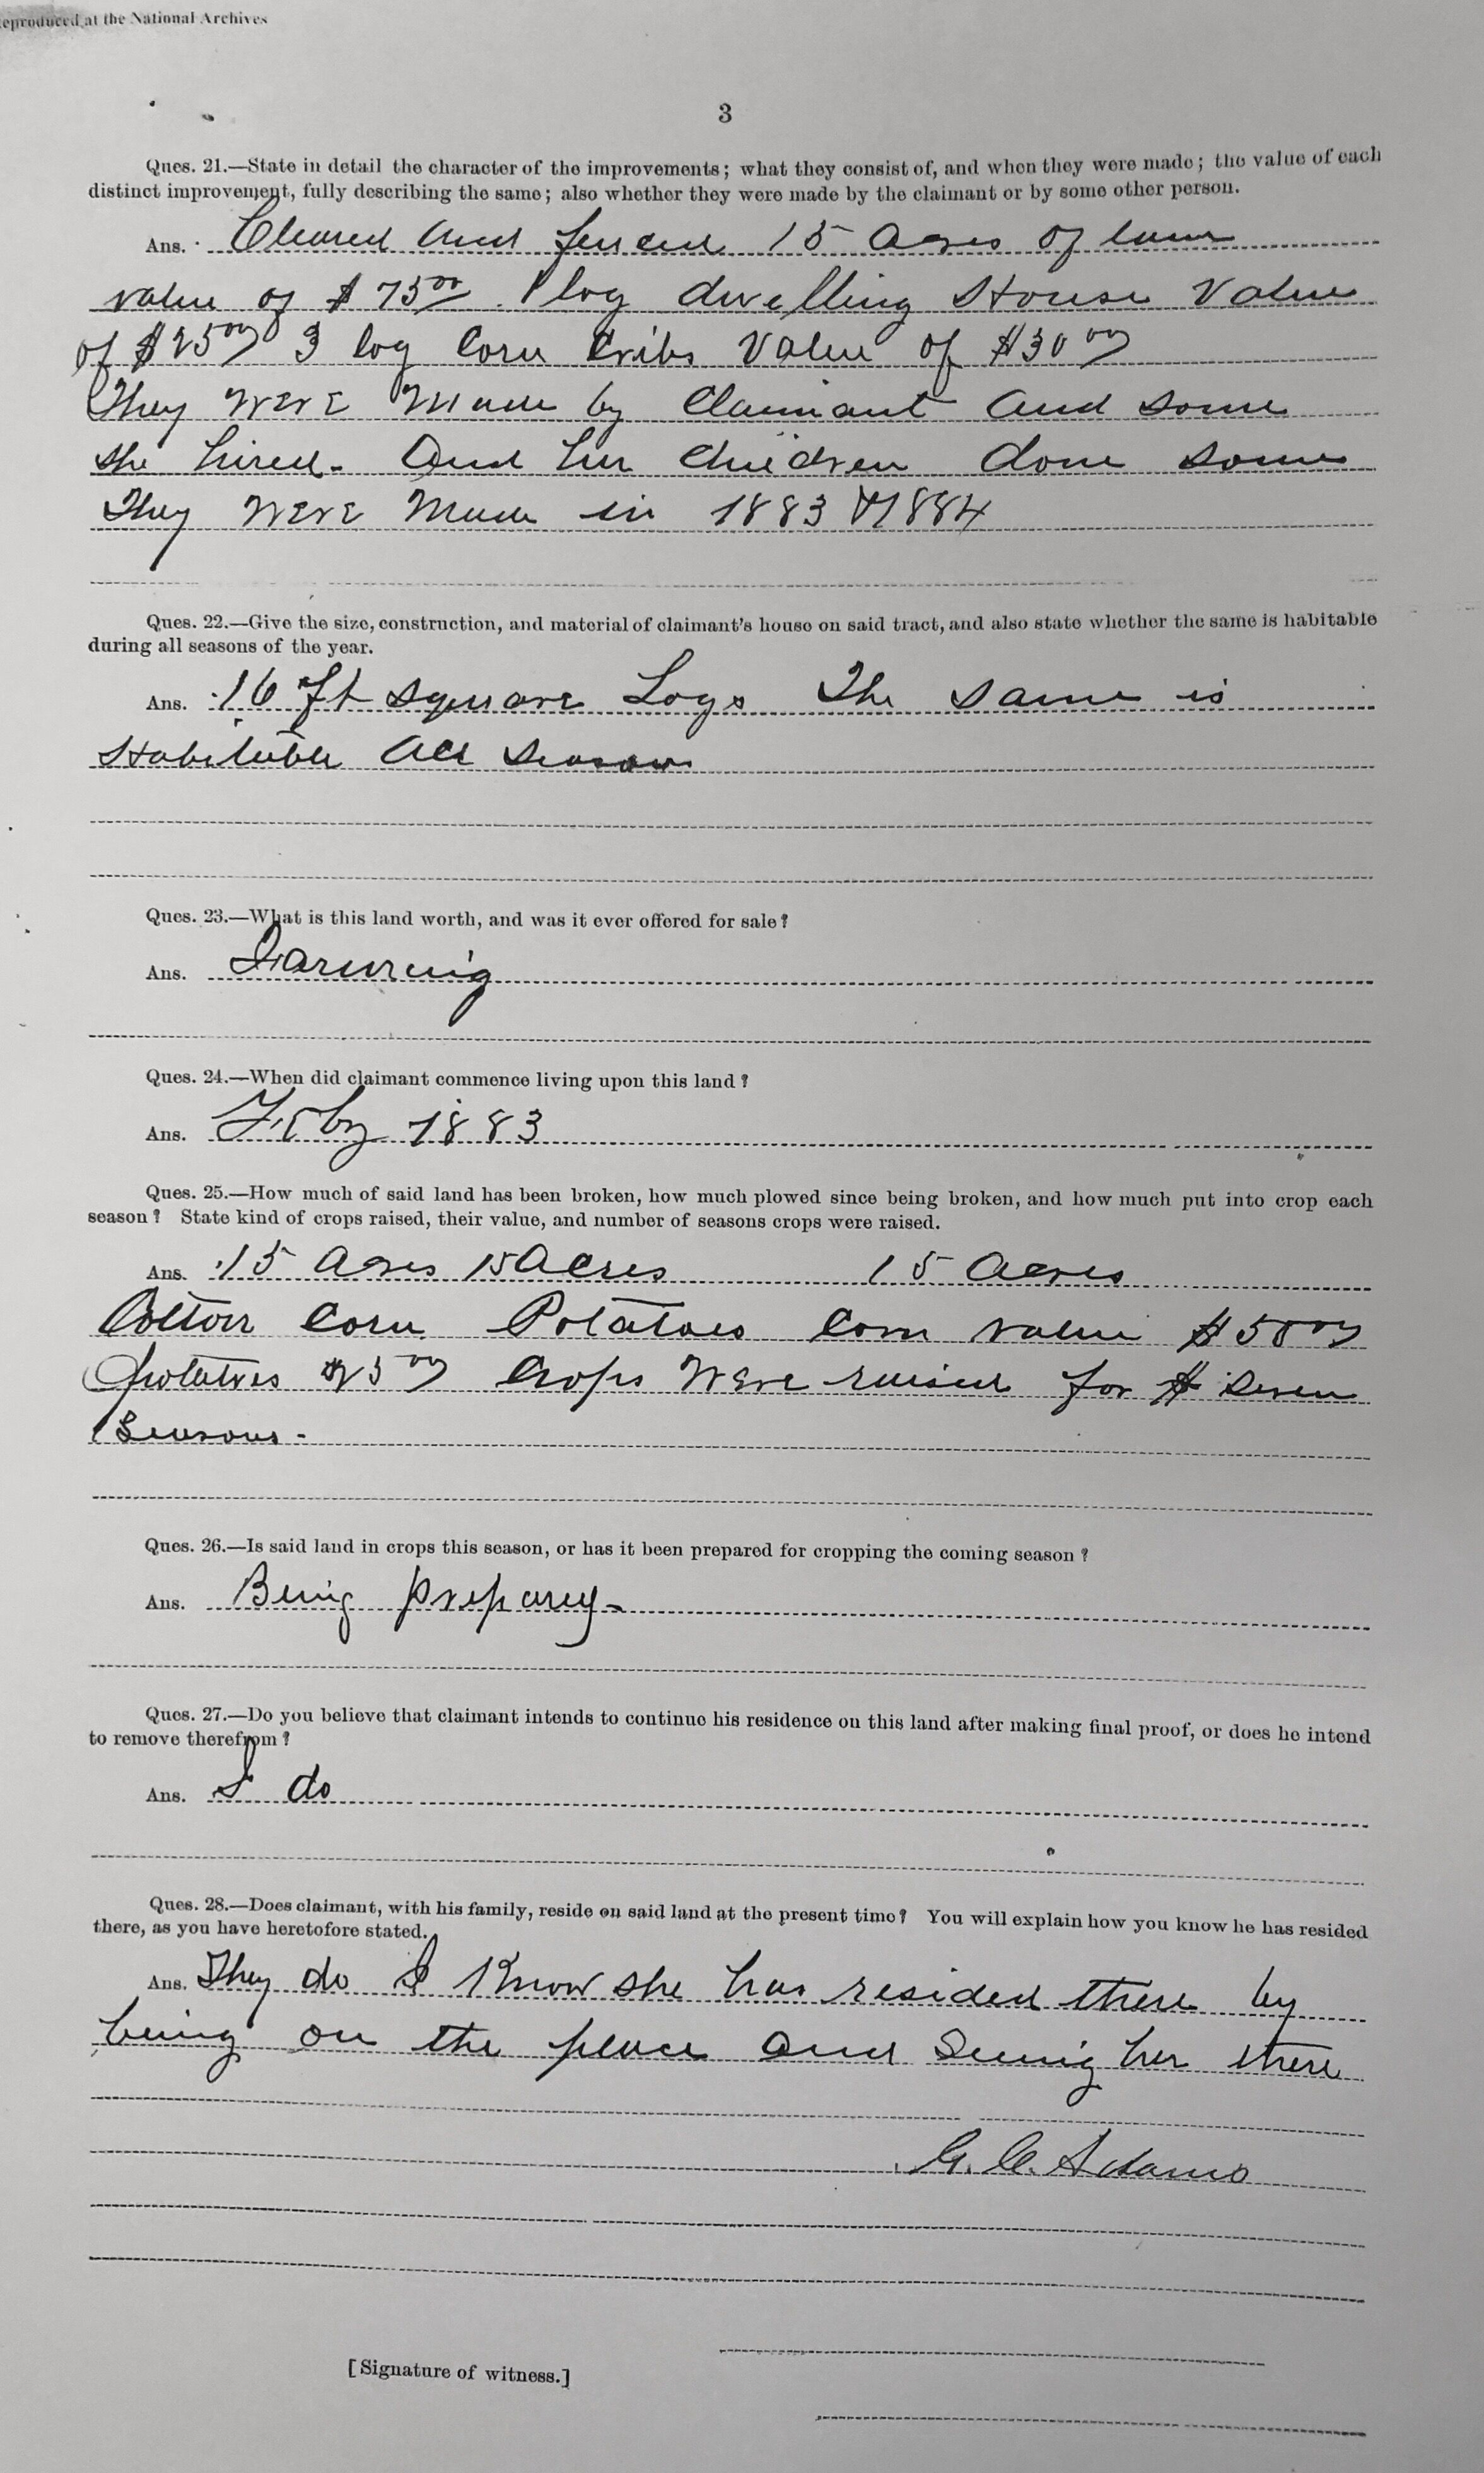 eproduced at the National Archives
3
Ques. 21.—State in detail the character of the improvements; what they consist of, and when they were made; the value of each
distinct improvement, fully describing the same; also whether they were made by the claimant or by some other person.
Ans. Cleared and fenced 15 acres of land
value of $75 00 1 log dwelling House Value
of $25 00 3 log Corn Cribs Value of $30 00
They were Made by Claimant and some
she hired. And her Children done some
They were Made in 1883 & 1884
Ques. 22.—Give the size, construction, and material of claimant's house on said tract, and also state whether the same is habitable
during all seasons of the year.
Ans. 16 ft square Logs The same is
Habitable All Seasons
Ques. 23.—What is this land worth, and was it ever offered for sale?
Ans.
Ques. 24.—When did claimant commence living upon this land?
Ans. Feby 1883
Ques. 25.—How much of said land has been broken, how much plowed since being broken, and how much put into crop each
season? State kind of crops raised, their value, and number of seasons crops were raised.
Ans. 15 Acres 15 Acres 15 Acres
Cotton Corn Potatoes Corn value $50 00
Potatoes 00 Crops Were raised for Seven
Seasons.
Ques. 26.—Is said land in crops this season, or has it been prepared for cropping the coming season?
Ans. Being
Ques. 27.—Do you believe that claimant intends to continue his residence on this land after making final proof, or does he intend
to remove therefrom?
Ans. I do
Ques. 28.—Does claimant, with his family, reside on said land at the present time? You will explain how you know he has resided
there, as you have heretofore stated.
Ans. They do I Know she has resided there by
being on the place and Seeing her there
G. C. Adams
[Signature of witness.]